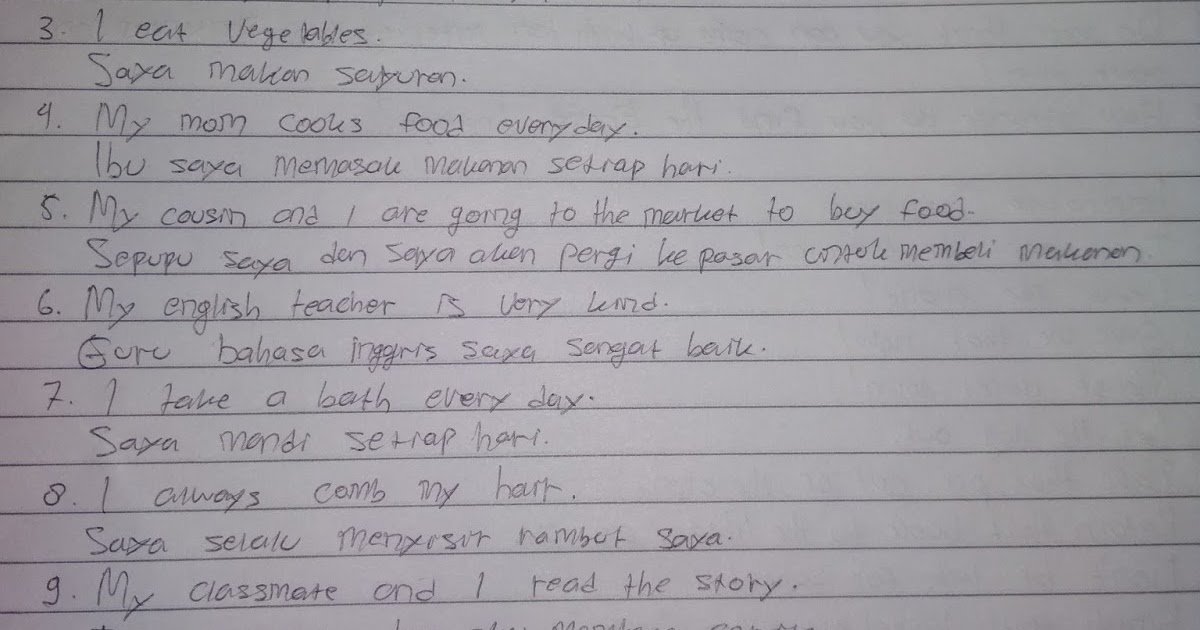 3. I eat Vegetables.
Saya makan sayuran.
4. My mom cooks food everyday.
Ibu saya memasak makanan setiap hari.
5. My cousin and I are going to the market to buy food.
Sepupu saya dan saya akan pergi ke pasar untuk membeli makanan.
6. My english teacher is very kind.
Guru bahasa inggris saya sangat baik.
7. I take a bath every day.
Saya mandi setiap hari.
8. I always comb my hair.
Saya selalu menyisir rambut saya.
9. My classmate and I read the story.